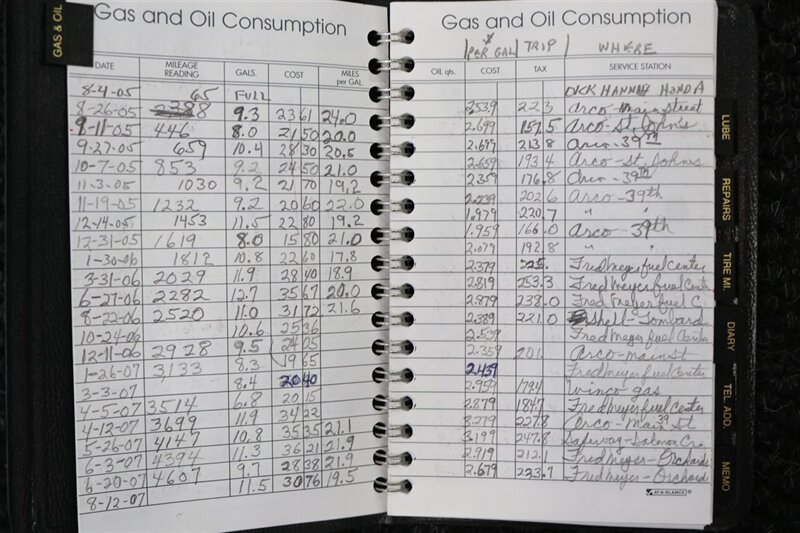 GAS & OIL
Gas and Oil Consumption
DATE MILEAGE READING GALS. COST MILES per GAL.
8-4-05 65 FULL
8-26-05 288 9.3 23 61 24.0
9-11-05 446 8.0 21 50 20.0
9-27-05 659 10.4 28 30 20.5
10-7-05 853 9.2 24 50 21.0
11-3-05 1030 9.2 21 70 19.2
11-19-05 1232 9.2 20 60 22.0
12-14-05 1453 11.5 22 80 19.2
12-31-05 1619 8.0 15 80 21.0
1-30-06 1812 10.8 22 60 17.8
3-31-06 2029 11.9 28 40 18.9
6-27-06 2282 12.7 35 67 20.0
8-22-06 2520 11.0 31 72 21.6
10-24-06 10.6 25 36
12-11-06 2928 9.5 24 05
1-26-07 3133 8.3 19 65
3-3-07 8.4 20 40
4-5-07 3514 6.8 20 15
4-12-07 3699 11.9 34 22
5-26-07 4147 10.8 35 35 21.1
6-3-07 4394 11.3 36 21 21.9
6-20-07 4607 9.7 28 38 21.9
8-12-07 11.5 30 76 19.5
Gas and Oil Consumption
$ PER GAL TRIP WHERE
OIL qts. COST TAX SERVICE STATION
DICK HANNAH HONDA
2.539 223 Arco Main Street
2.699 157.5 Arco-St. John's
2.699 213.8 Arco-39th
2.659 193.4 Arco-St. Johns
2.359 176.8 Arco-39th
2.239 202.6 Arco-39th
1.979 220.7 " "
1.959 166.0 Arco-39th
2.079 192.8 " "
2.379 Fred Meyer fuel Center
2.819 253.3 Fred Meyer fuel Cente
2.879 238.0 Fred Meyer fuel C.
2.389 221.0 Shell-Lombard
2.539 Fred Meyer fuel Cente
2.359 201. Arco-main st
2.459 Fred Meyer fuel Center
2.959 178.4 Winco gas
2.879 184.7 Fred Meyer fuel Center
3.279 227.8 Arco-Main St 39
3.199 247.8 Safeway-Salmon Cre.
2.919 212.1 Fred Meyer-Orchards
2.679 223.7 Fred Meyer-Orchard
AT-A-GLANCE
LUBE
REPAIRS
TIRE MI.
DIARY
TEL. ADD.
MEMO